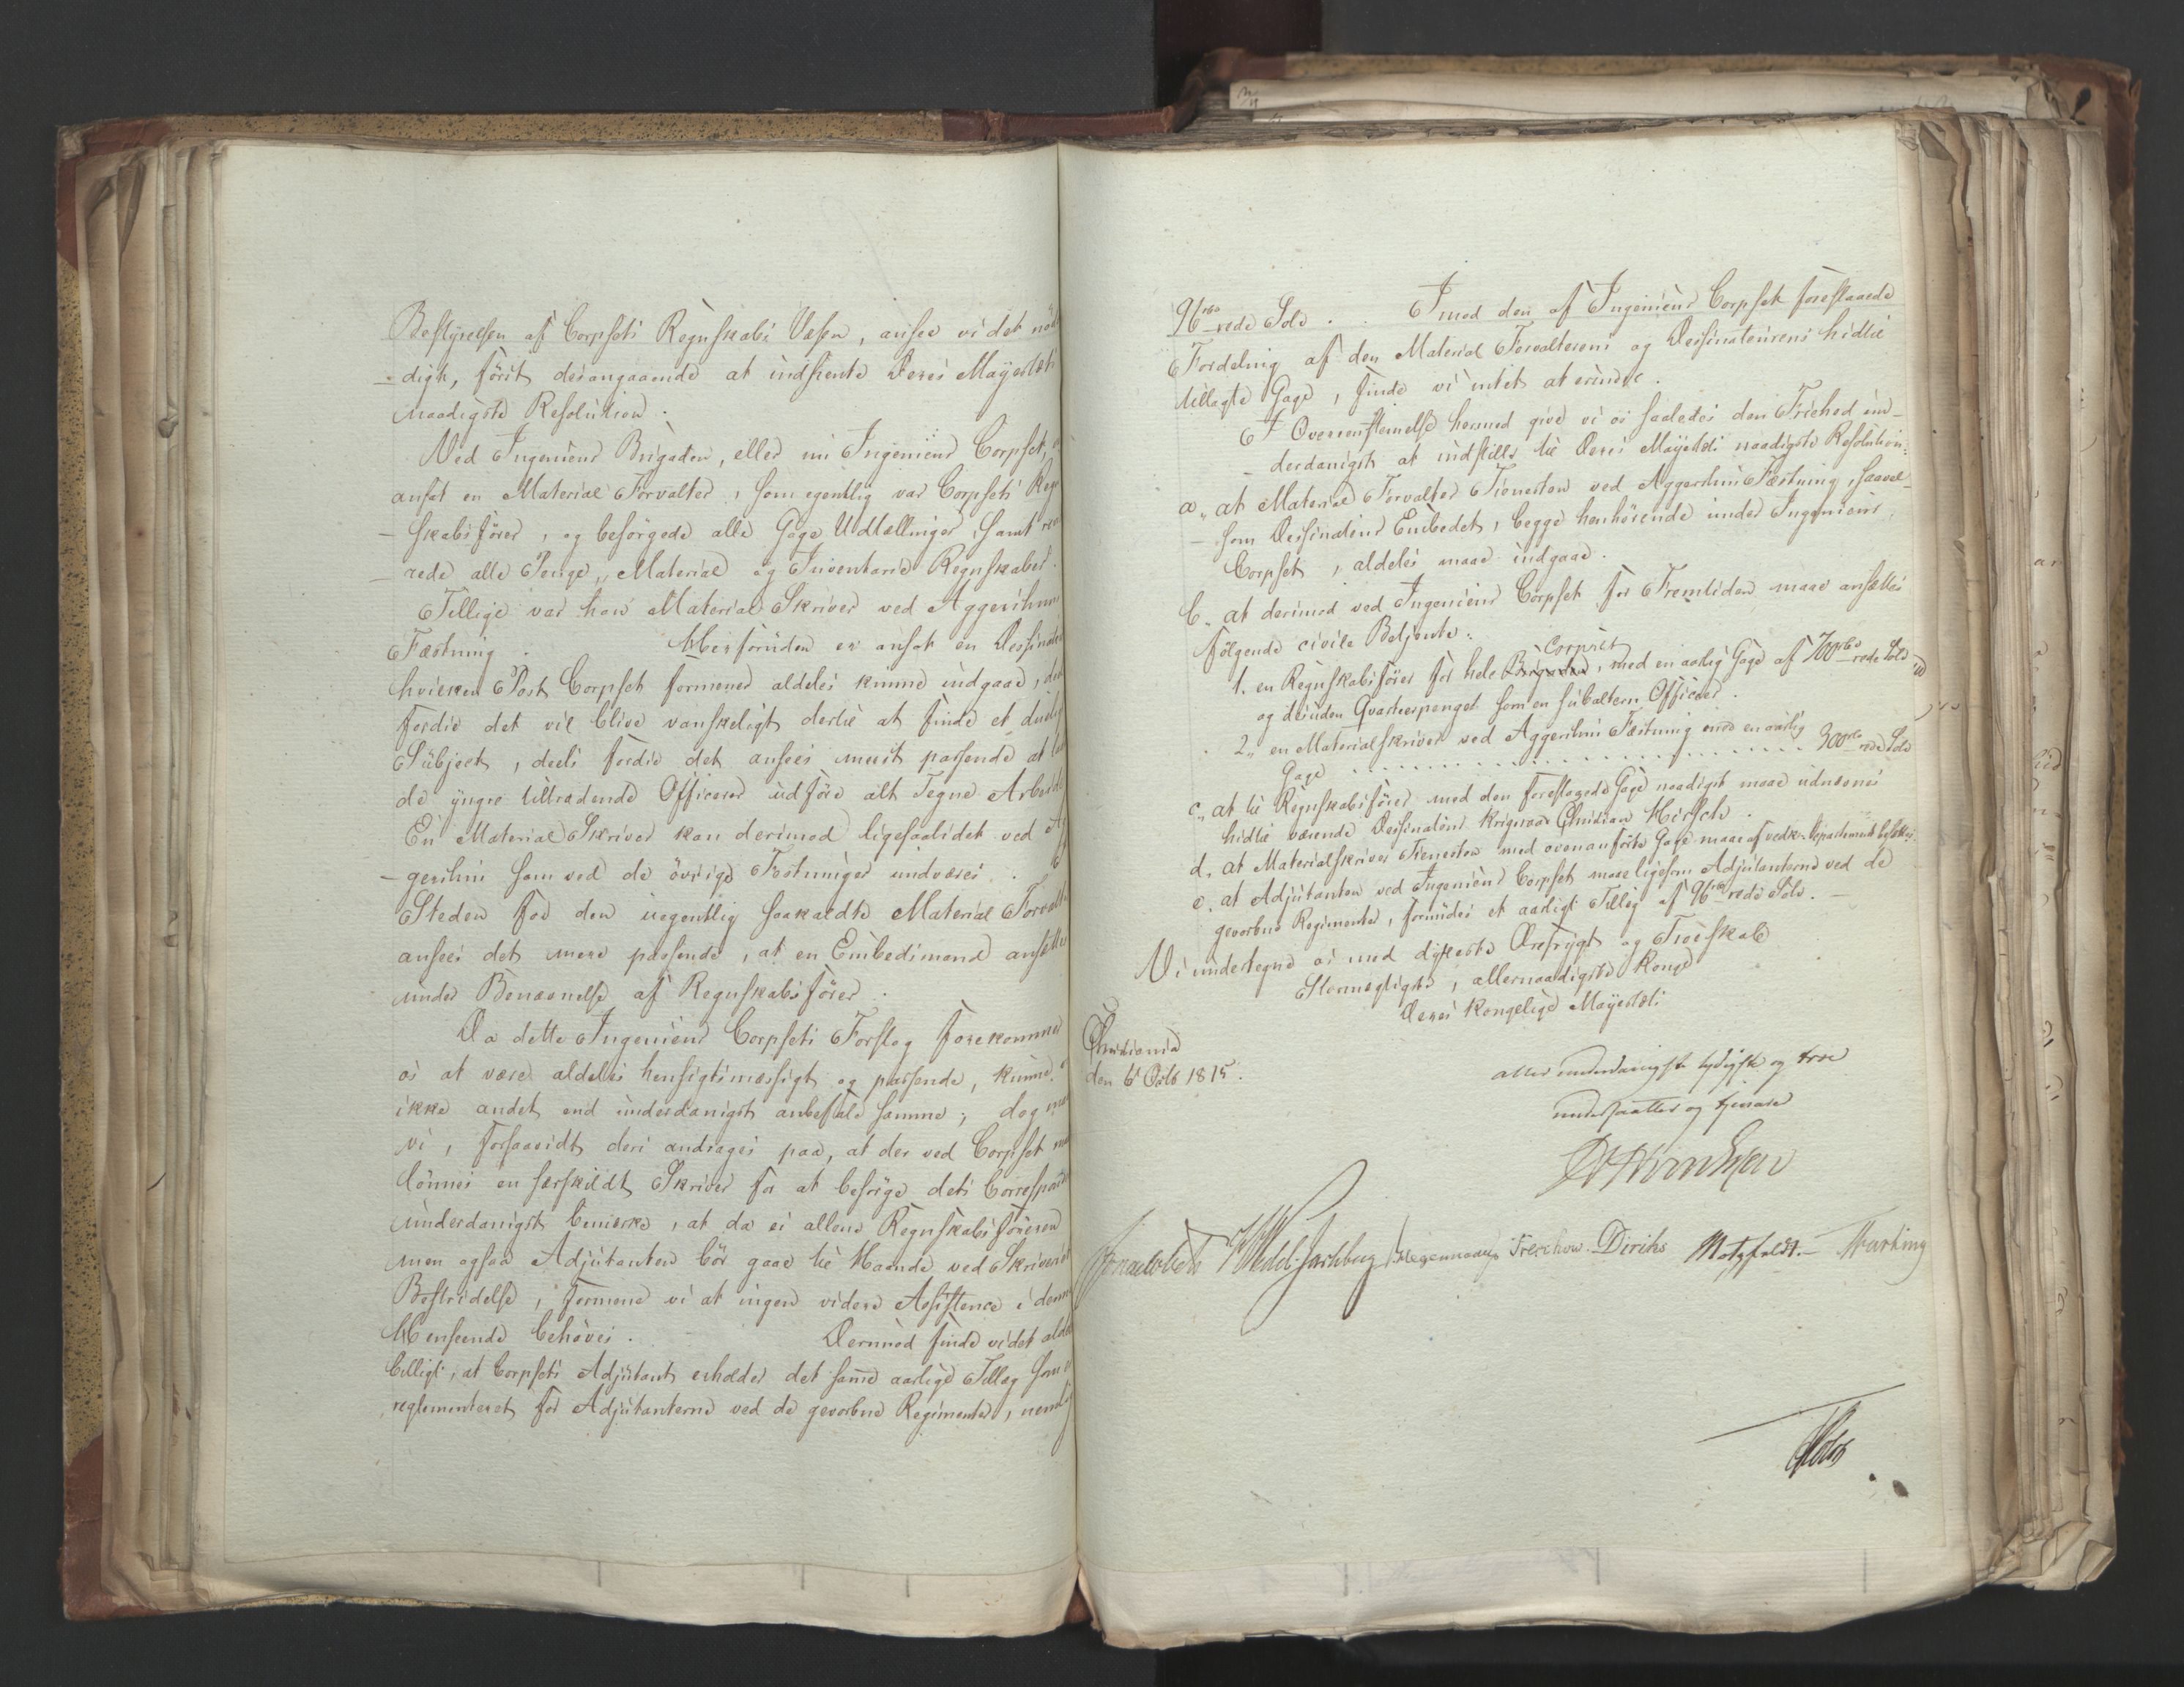 Bestyrelsen af Corpsets Regnskabs Væsen, ansee vi det nöd
-digt, först desangaaende at indhente Deres Mayestæts
naadigste Resolution.
Ved Ingenieur Brigaden, eller nu Ingenieur Corpset, er
ansat en Material Forvalter, som egentlig var Corpsets Regn
-skabsförer, og besörgede alle Gage Udtællinger, samt
-rede alle Penge, Material og Inventarie Regnskaber.
Tillige var han Material Skriver ved Aggershuus
Fæstning. Herforuden er ansat en Dessinateur
hvilken Post Corpset formener aldeles kunne indgaae, deels
fordie det vil blive vanskeligt dertil at finde et dueligt
Subject, deels fordie det ansees meest passende at lade
de yngre tiltrædende Officerer udföre alt Tegne Arbeide.
En Material Skriver kan derimod ligesaalidet ved Ag
-gershus som ved de övrige Fæstninger undværes. I
Steden for den uegentlig saakaldte Material Forvalter
ansees det mere passende, at en Embedsmand ansættes
under Benævnelse af Regnskabsförer.
Da dette Ingenieur Corpsets Forslag forekommer
os at være aldeles hensigtsmæssigt og passende, kunne vi
ikke andet end underdanigst anbefale samme; dog maae
vi, forsaavidt deri andrages paa, at der ved Corpset maa
lönnes en særskildt Skriver for at besörge dets Correspondence
underdanigst bemærke, at da ei allene Regnskabsföreren
men ogsaa Adjutanten bör gaae til Haande ved Skriveriets
Bestridelse, formene vi at ingen videre Assistence i denne
Henseende behöves. Derimod finde vi det aldeles
billigt, at Corpsets Adjutant erholder det samme aarlige Tillæg som er
reglementeret for Adjutanterne ved de gevorbne Regimenter, nemlig
96 rbd rede Sölv. Imod den af Ingenieur Corpset foreslaaede
Fordeling af den Material Forvalterens og Dessinateurens hidtil
tillagte Gage, finde vi intet at erindre.
I Overeenstemmelse hermed give vi os saaledes den Friehed un-
-derdanigst at indstille til Deres Mayestæts naadigste Resolution:
a, at Material Forvalter Tienesten ved Aggershuus Fæstning, saavel-
-som Dessinateur Embedet, begge henhörende under Ingenieur
Corpset, aldeles maae indgaae.
b. at derimod ved Ingenieur Corpset for Fremtiden maae ansættes
fölgende civile Betjente:
1. en Regnskabsförer for hele Brigaden Corpset, med en aarlig Gage af 700 rbd rede Sölv
og desuden Qvarteerpenge som en subaltern Officeer.
2, en Materialskriver ved Aggershus Fæstning med en aarlig
Gage . . . . . . . . . . . . . . . . 300 rbd rede Sölv
c, at til Regnskabsförer med den foreslagede Gage naadigst maae udnævnes
hidtil værende Dessinateur Krigsraad Christian Hirsch.
d. at Materialskriver Tienesten med ovenanförte Gage maae af vedk. Departement besættes.
e. at Adjutanten ved Ingenieur Corpset maae ligesom Adjutanterne ved de
gevorbne Regimenter, formedes et aarligt Tillæg af 96 rbd rede Sölv.
Vi undertegne os med dybeste Ærefrygt og Troeskab
Stormægtigste, allernaadigste Konge
Deres Kongelige Mayestæts
Christiania
den 6t Octb 1815.
aller underdanigste lydigste og troe
undersaatter og tjenere
Sommerhielm Wedel-Jarlsberg Hegermann Treschow Diriks Motzfeldt Harbing